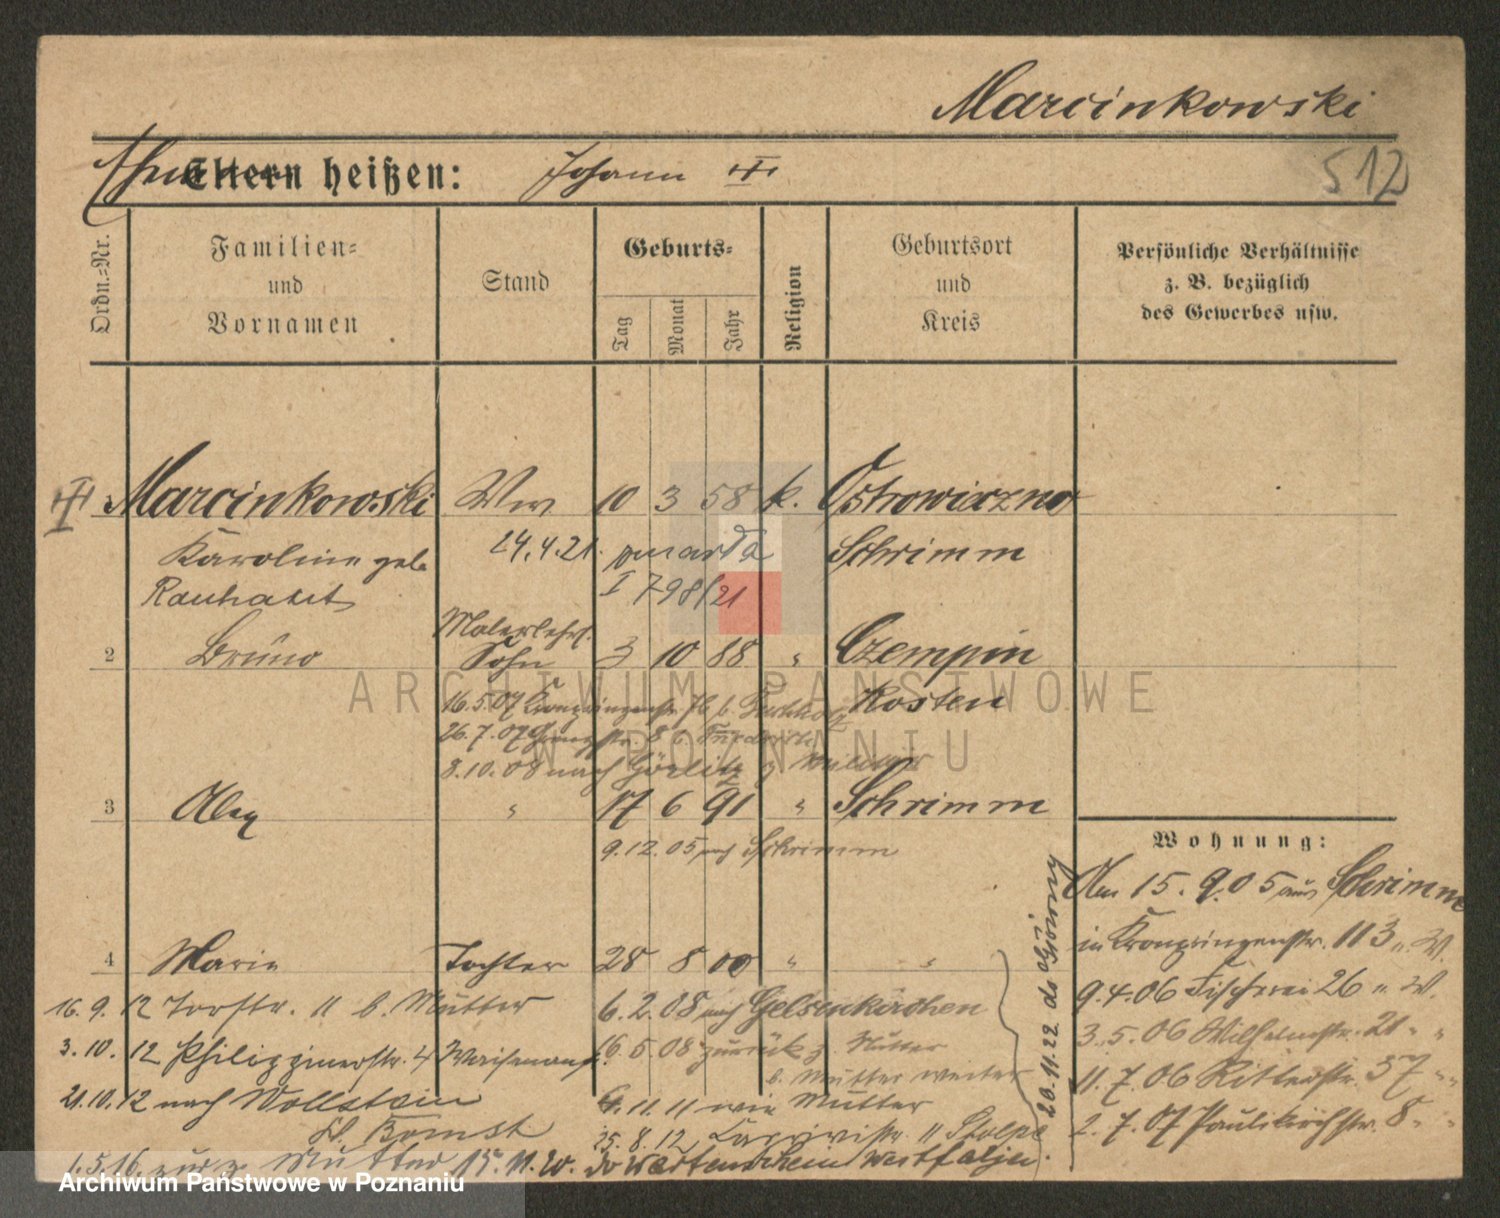 Marcinkowski
Eltern heißen: Johann
512
Ordn.-Nr.
Familien-
und
Vornamen
Stand
Geburts-
Tag
Monat
Jahr
Religion
Geburtsort
und
Kreis
Persönliche Verhältnisse
z. B. bezüglich
des Gewerbes usw.
Marcinkowski Ww. 10 3 58 k. Ostrowieczno
Karoline geb. 24.4.21. umarła Schrimm
I 798/21
Malerlehrl.
2 Bruno Sohn 3 10 88 " Czempin
16.5.07 Kronprinzenstr. 76 b. Kosten
26.7.07
8.10.08 nach Görlitz z Militär
3 Alex " 17 6 91 " Schrimm
9.12.05 nach Schrimm
Wohnung:
Am 15.9.05 aus Schrimm
in Kronprinzenstr. 113 n. W.
9.4.06 Fischerei 26 n. W.
3.5.06 Wilhelmstr. 21 " "
11.7.06 Ritterstr. 37 " "
2.7.07 Paulikirchstr. 8 " "
4 Marie Tochter 28 8 00 " "
16.9.12 Torstr. 11 b. Mutter 6.2.08 nach Gelsenkirchen
3.10.12 Philippinerstr. 4 Waisenanst. 16.5.08 zurück z. Mutter
b. Mutter weiter
21.10.12 nach Wollstein 4.11.11 wie Mutter
Kr. Bomst 25.8.12 11 Stolpe
1.5.16. zur z. Mutter 15.11.20. do Westfalji.
20.11.22 do
ARCHIWUM PAŃSTWOWE
W POZNANIU
Archiwum Państwowe w Poznaniu